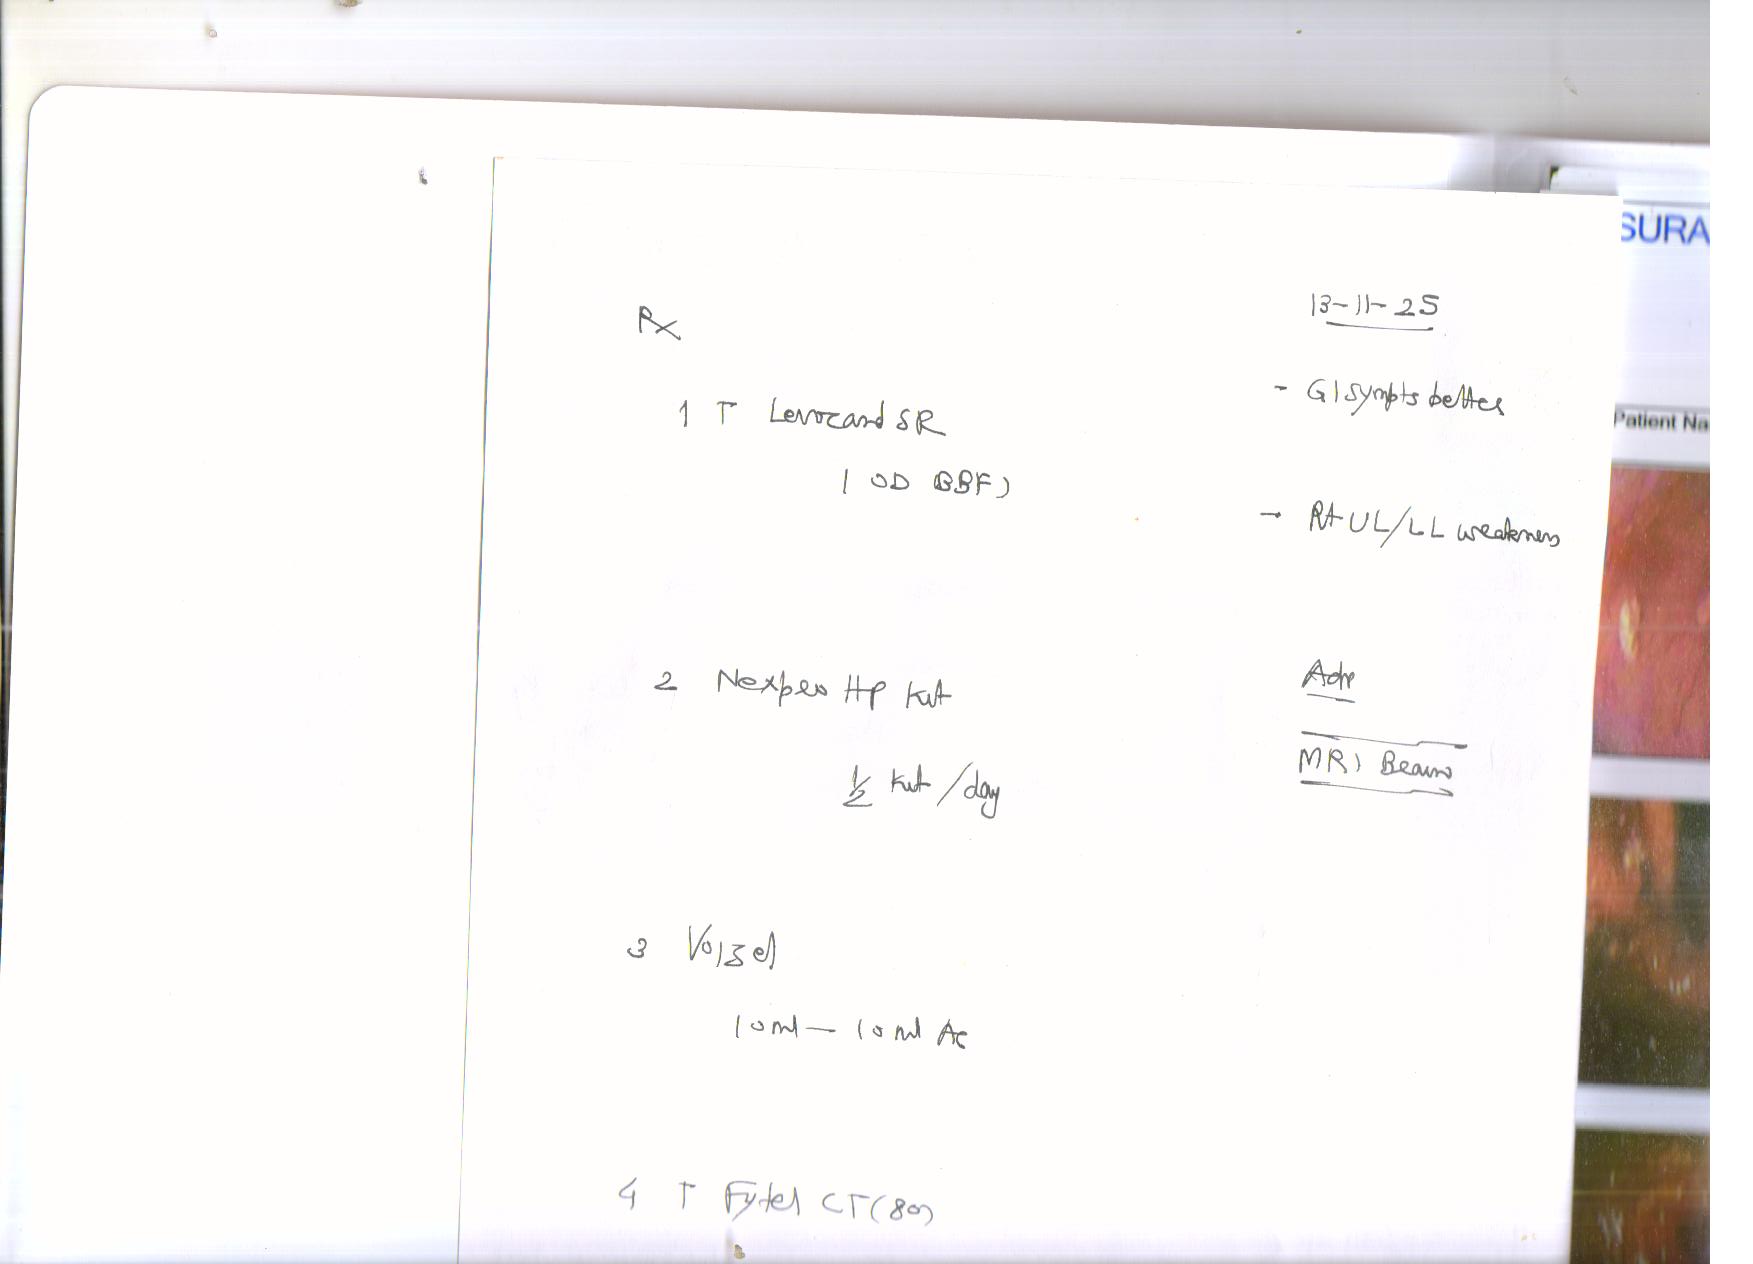 13-11-25
Rx
- GI sympts better
1 T Levozand SR
1 OD BBF)
→ Rt UL/LL weakness
2 Nexpro HP Kit
Adv
MRI Brain
½ kit/day
3 Voizel
10ml — 10ml AC
4 T Fytel CT (80)
SURA
Patient Na